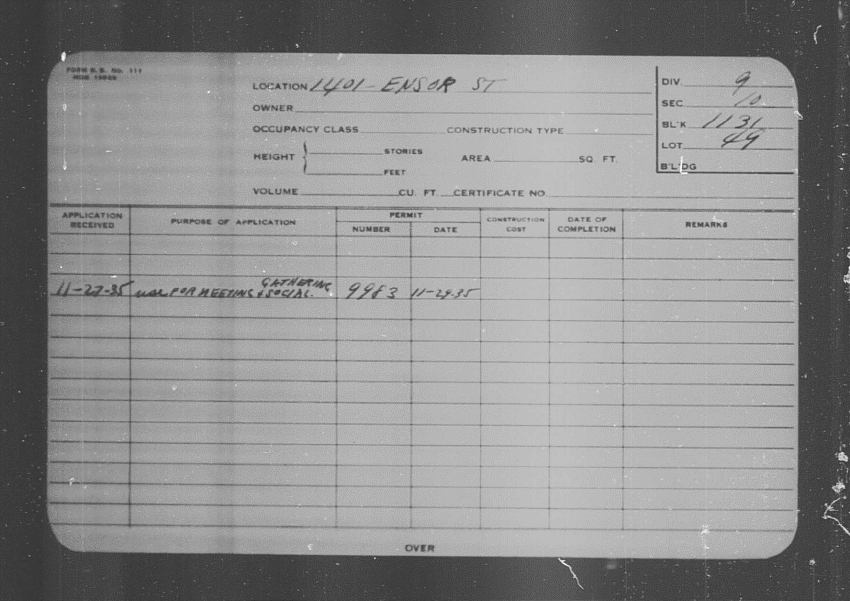 FORM B. B. No. 111
LOCATION 1401 - ENSOR ST
OWNER
OCCUPANCY CLASS CONSTRUCTION TYPE
HEIGHT { STORIES
FEET
AREA SQ. FT.
VOLUME CU. FT. CERTIFICATE NO.
DIV. 9
SEC 10
BL'K 1131
LOT 49
B'L'DG
APPLICATION RECEIVED PURPOSE OF APPLICATION PERMIT NUMBER DATE CONSTRUCTION COST DATE OF COMPLETION REMARKS
GATHERING
11-27-35 use FOR MEETING & SOCIAL. 9983 11-29-35
OVER